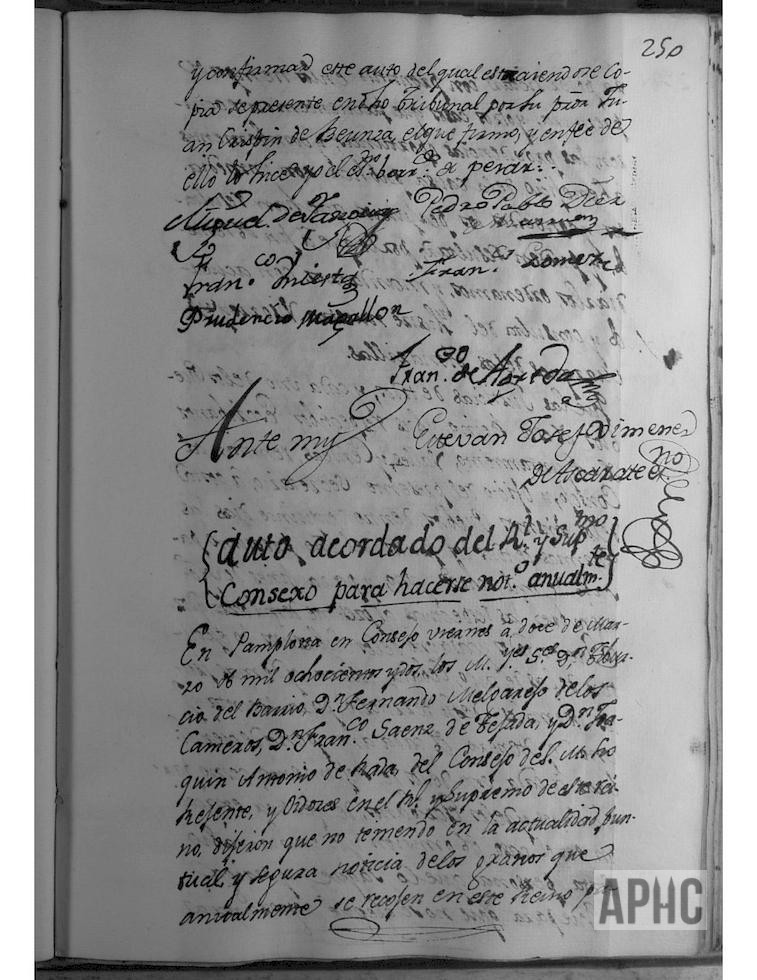 250
y confirmar este auto del qual estraiendose Co-
pia se presente en dho Tribunal por su pror Ju-
an Crispin de Beunza, el que firmo, y en fee de
ello lo hice yo el es.no
Miguel de
Pedro Pablo Diez
Fran.co Huerta
Fran.co Gomez
Prudencio Magallon
Fran.co de Agreda
Ante my
Estevan Josef Ximenez
de Ascarate es.no
Auto acordado del R.l y Sup.mo
Consexo para hacerse not.o anualm.te
En Pamplona en Consejo viernes a doce de Mar-
zo de mil ochocientos y dos, los M. Y.es S.es D.n
cio del Barrio, D.n Fernando Melgarejo de los
Cameros, D.n Fran.co Saenz de Tejada, y D.n Joa-
quin Antonio de Rada, del Consejo de S. M. ho
Resente, y Oidores en el R.l y Supremo de este rei-
no, dijeron que no teniendo en la actualidad pun-
tual, y segura noticia de los granos que
anualmente se recojen en este Reino
APHC